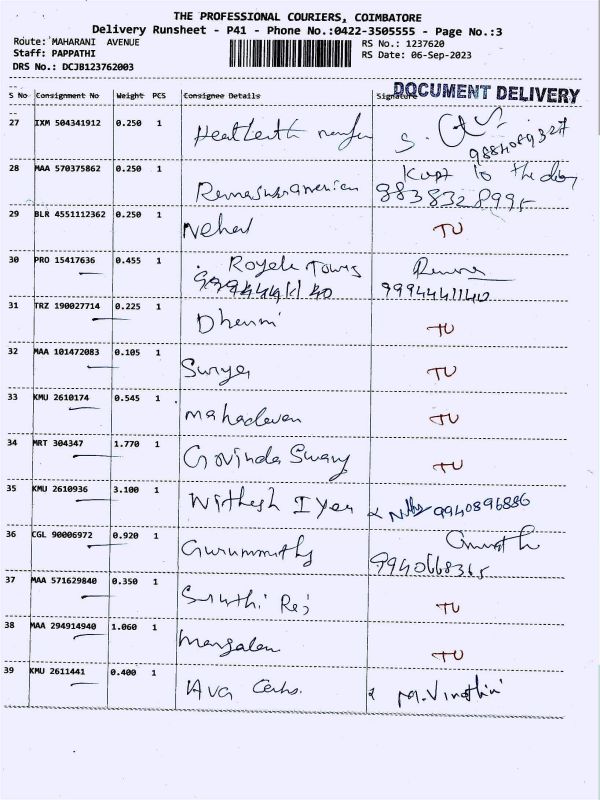 THE PROFESSIONAL COURIERS, COIMBATORE
Delivery Runsheet - P41 - Phone No.:0422-3505555 - Page No.:3
Route: MAHARANI AVENUE RS No.: 1237620
Staff: PAPPATHI RS Date: 06-Sep-2023
DRS No.: DCJB123762003
DOCUMENT DELIVERY
S No Consignment No Weight PCS Consignee Details Signature
27 IXM 504341912 0.250 1 S.
9884089327
28 MAA 570375862 0.250 1 Kept to the
29 BLR 4551112362 0.250 1 Nehal TU
30 PRO 15417636 0.455 1 Royele Towrs
9994441140 9994441140
31 TRZ 190027714 0.225 1 Dhenmi TU
32 MAA 101472083 0.105 1 Surya TU
33 KMU 2610174 0.545 1 mahadevan TU
34 MRT 304347 1.770 1 Govinda Swamy TU
35 KMU 2610936 3.100 1 Withesh Iyer 9940896886
36 CGL 90006972 0.920 1 Gurumurthy
9940668365
37 MAA 571629840 0.350 1 Sruthi Rej TU
38 MAA 294914940 1.060 1 Mangalam TU
39 KMU 2611441 0.400 1 AVG M.Vinothini